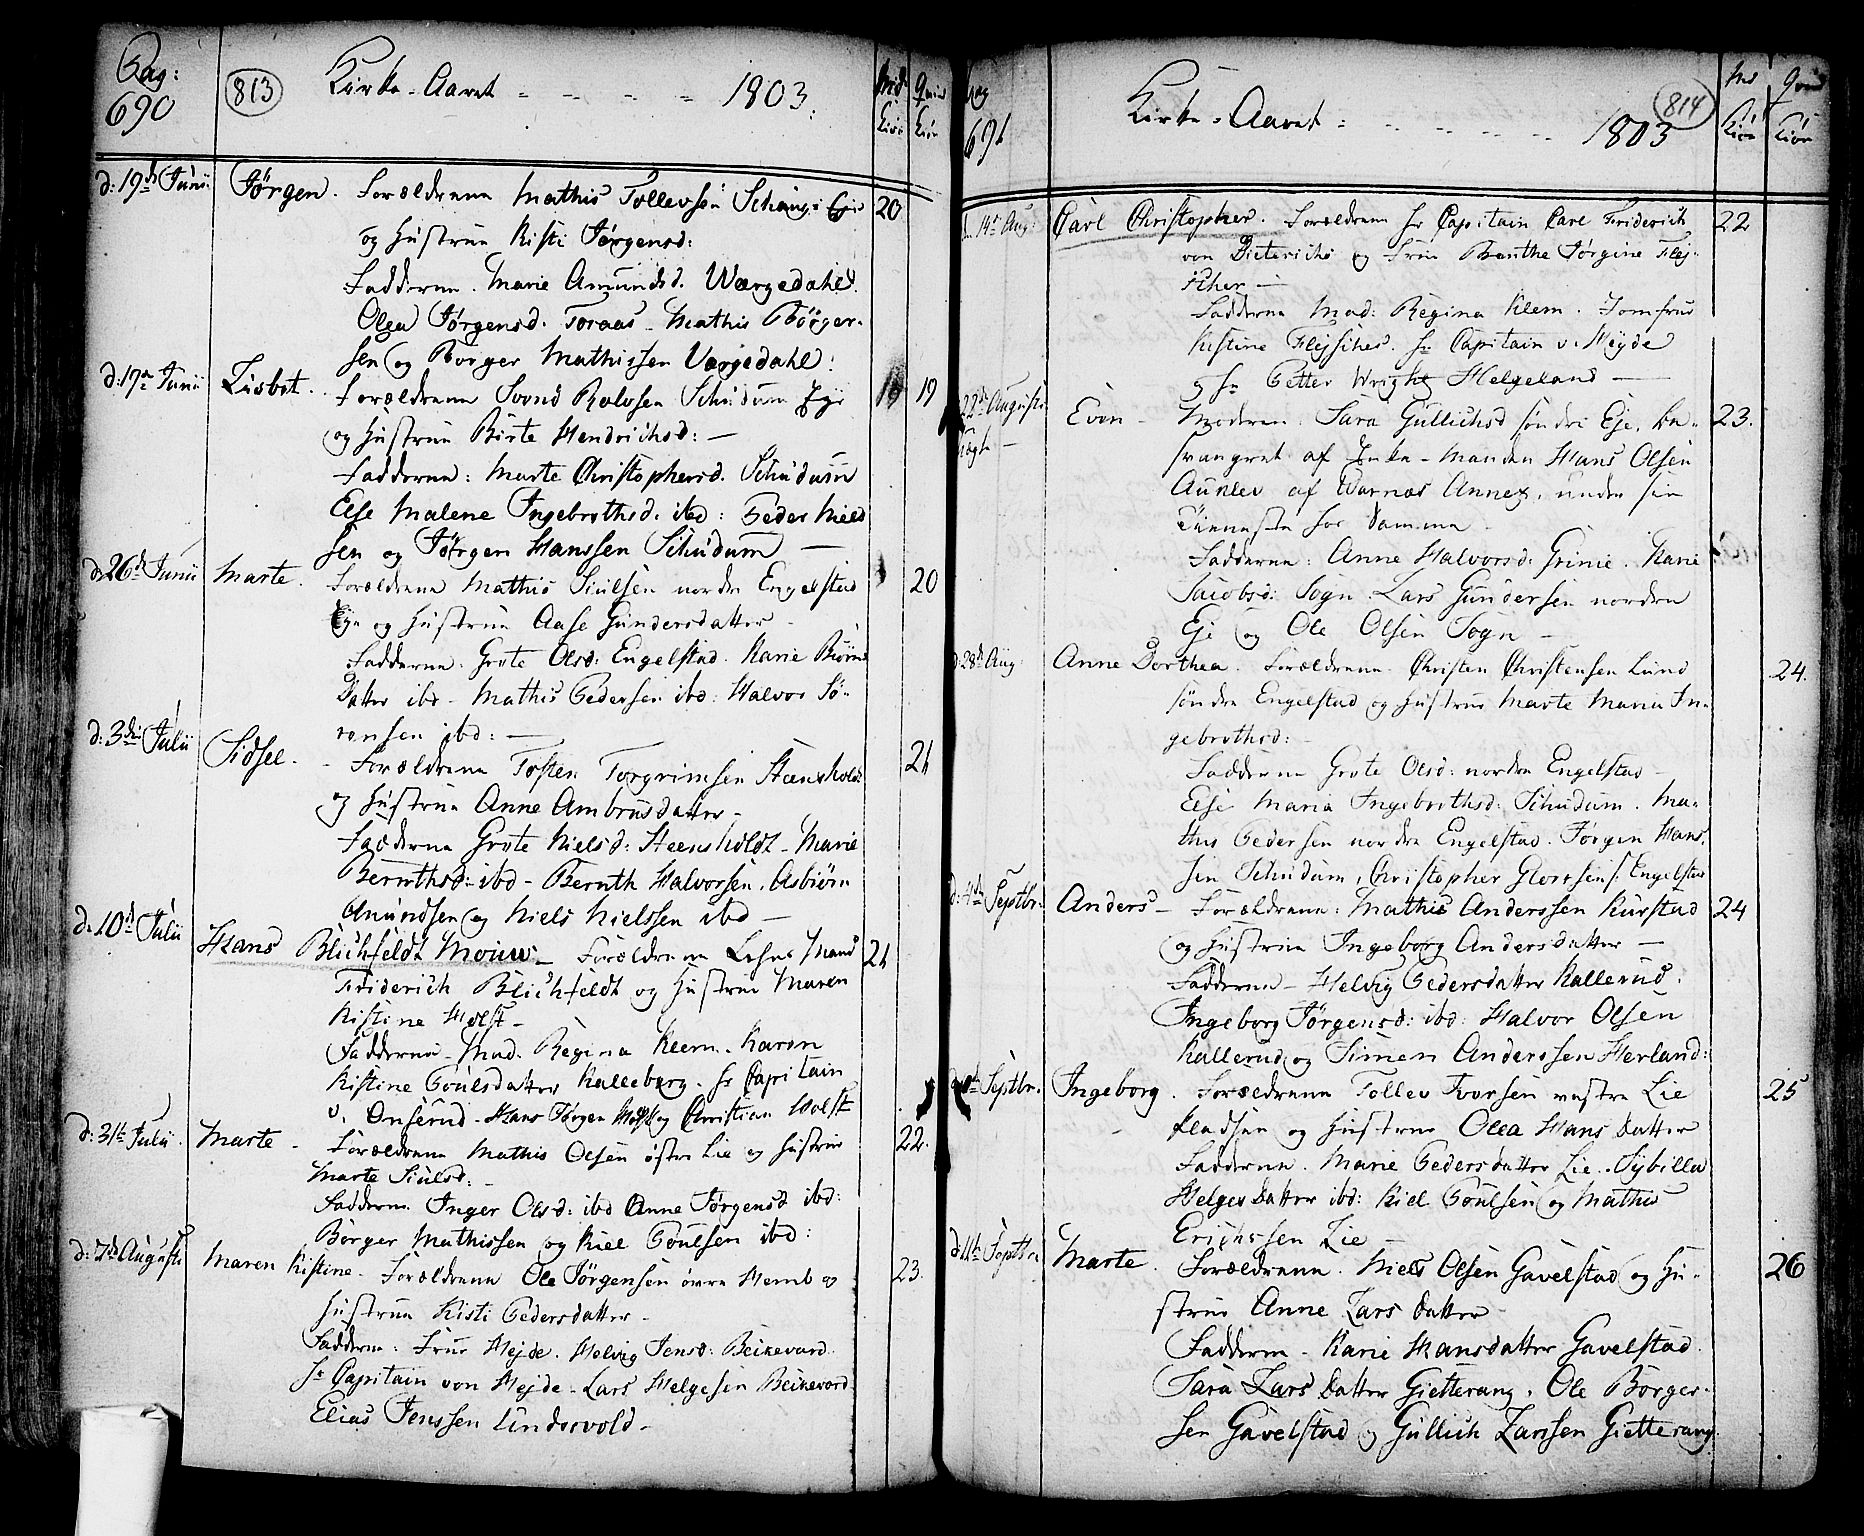 Pag: 690
813
Kirke-Aaret - - - - 1803.
Mid Kiøn
Qvind Kiøn
d: 19de Junii. Jørgen. Forældrene Mathis Tollevsen Eje 20
og Hustrue Kisti Jørgensd:
Fadderne. Marie Amundsd. Wærgedahl.
Olea Jørgensd. Toraas - Mathis Børger-
sen og Borger Mathissen Værgedahl:
d: 19de Junii Lisbet. Forældrene Svend Rolvsen Schudum Eje 19
og Hustrue Birte Hendrichsd: -
Fadderne: Marte Christophersd. Schudum
Else Malene Ingebrethsd. ibd: Peder Niels
sen og Jørgen Hanssen Schudum -
d: 26de Junii Marte. Forældrene Mathis Siulsen nordre Engelstad 20
Eje og Hustrue Aase Gundersdatter -
Fadderne. Grete Olsd: Engelstad. Karie Biørns
Datter ibd - Mathis Pedersen ibd: Halvor Sø-
rensen ibd: -
d: 3die Julii Sidsel. - Forældrene Tosten Torgrimsen Steensholdt 21
og Hustrue Anne Ambrusdatter -
Fadderne Grete Nielsd: Steensholdt - Marie
Bernthsd: ibd - Bernth Halvorsen. Asbiørn
Amundsen og Niels Nielssen ibd -
d: 10de Julii Hans Blichfeldt - Forældrene Lehns Mand 21
Friderich Blichfeldt og Hustrue Maren
Kistine Holst -
Fadderne - Mad. Regina Kleem. Karen
Kistine Poulsdatter Kalleberg. Hr Capitain
v. Hans Jørgen Holst og Christian Holst
d: 31te Julii. Marte - Forældrene Mathis Olsen østre Lie og Hustrue 22.
Marte Siulsd: -
Fadderne. Inger Olsd: ibd Anne Jørgensd ibd:
Børger Mathissen og Kiel Poulsen ibd:
d: 7de Augusti Maren Kistine - Forældrene Ole Jørgensen øvre Hemb og 23.
Hustrue Kisti Pedersdatter -
Fadderne: Frue Hejde. Helvig Jensd: Beikevard.
Hr Capitain von Hejde - Lars Helgesen Beikevard
Elias Jenssen Undersvold -
Pag 691
Kirke-Aaret - - - - 1803
814
Kiøn
Qvind Kiøn
d. 14de Aug: Carl Christopher. Forældrene Hr Capitain Carl Friderich 22
von Dieterichs og Frue Benthe Jørgine Flej-
scher -
Fadderne Mad: Regina Klem. Jomfrue
Kistine Flejscher. Hr Capitain v. Hejde
og Hr Petter Wright Helgeland -
22de Augusti Even - Moderen: Sara Gullichsd søndre Eje. be- 23.
svangret af Enke-Manden Hans Olsen
Aunlev af Warnes Annex, under sin
Tieneste hos Samme
Fadderne: Anne Halvorsd: Grinie. Karie
Jacobsd: Sogn. Lars Gundersen nordre
Eje og Ole Olsen Sogn -
d: 28de Aug: Anne Dorthea. Forældrene. Christen Christensen Lund 24.
søndre Engelstad og Hustrue Marte Maria In-
gebrethsd: -
Fadderne Grete Olsd: nordre Engelstad -
Else Maria Ingebrethsd: Schudum. Ma-
this Pedersen nordre Engelstad. Jørgen Hans-
sen Schudum, Christopher s: Engelstad
d: 4de Septbr: Anders - Forældrene: Mathis Anderssen Kurstad 24
og Hustrue Ingeborg Andersdatter -
Fadderne - Helvig Pedersdatter Kallerud.
Ingeborg Jørgensd: ibd: Halvor Olsen
Kallerud og Simen Anderssen Herland:
Septbr: Ingeborg. Forældrene Tollev Iversen vestre Lie 25
Pladsen og Hustrue Olea Hans Datter
Fadderne. Marie Pedersdatter Lie. Sybilla
Helges Datter ibd: Kiel Poulsen og Mathis
Erichssen Lie -
d: 11te Septbr: Marte. Forældrene. Niels Olsen Gavelstad og Hu- 26
strue Anne Lars Datter
Fadderne - Karie Hansdatter Gavelstad.
Sara Lars Datter Gietterang. Ole Børger-
sen Gavelstad og Gullich Larssen Gietterang.